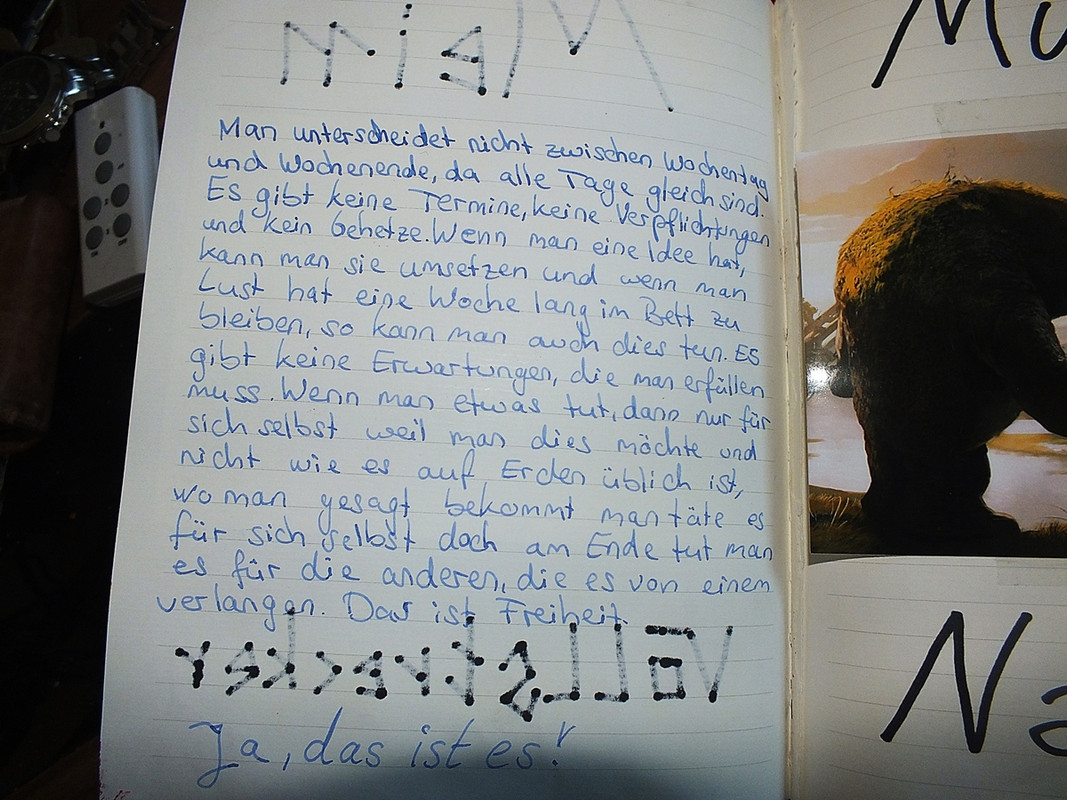 Man unterscheidet nicht zwischen Wochentag
und Wochenende, da alle Tage gleich sind.
Es gibt keine Termine, keine Verpflichtungen
und kein Gehetze. Wenn man eine Idee hat,
kann man sie umsetzen und wenn man
Lust hat eine Woche lang im Bett zu
bleiben, so kann man auch dies tun. Es
gibt keine Erwartungen, die man erfüllen
muss. Wenn man etwas tut, dann nur für
sich selbst weil man dies möchte und
nicht wie es auf Erden üblich ist,
wo man gesagt bekommt man täte es
für sich selbst doch am Ende tut man
es für die anderen, die es von einem
verlangen. Das ist Freiheit.
Ja, das ist es!